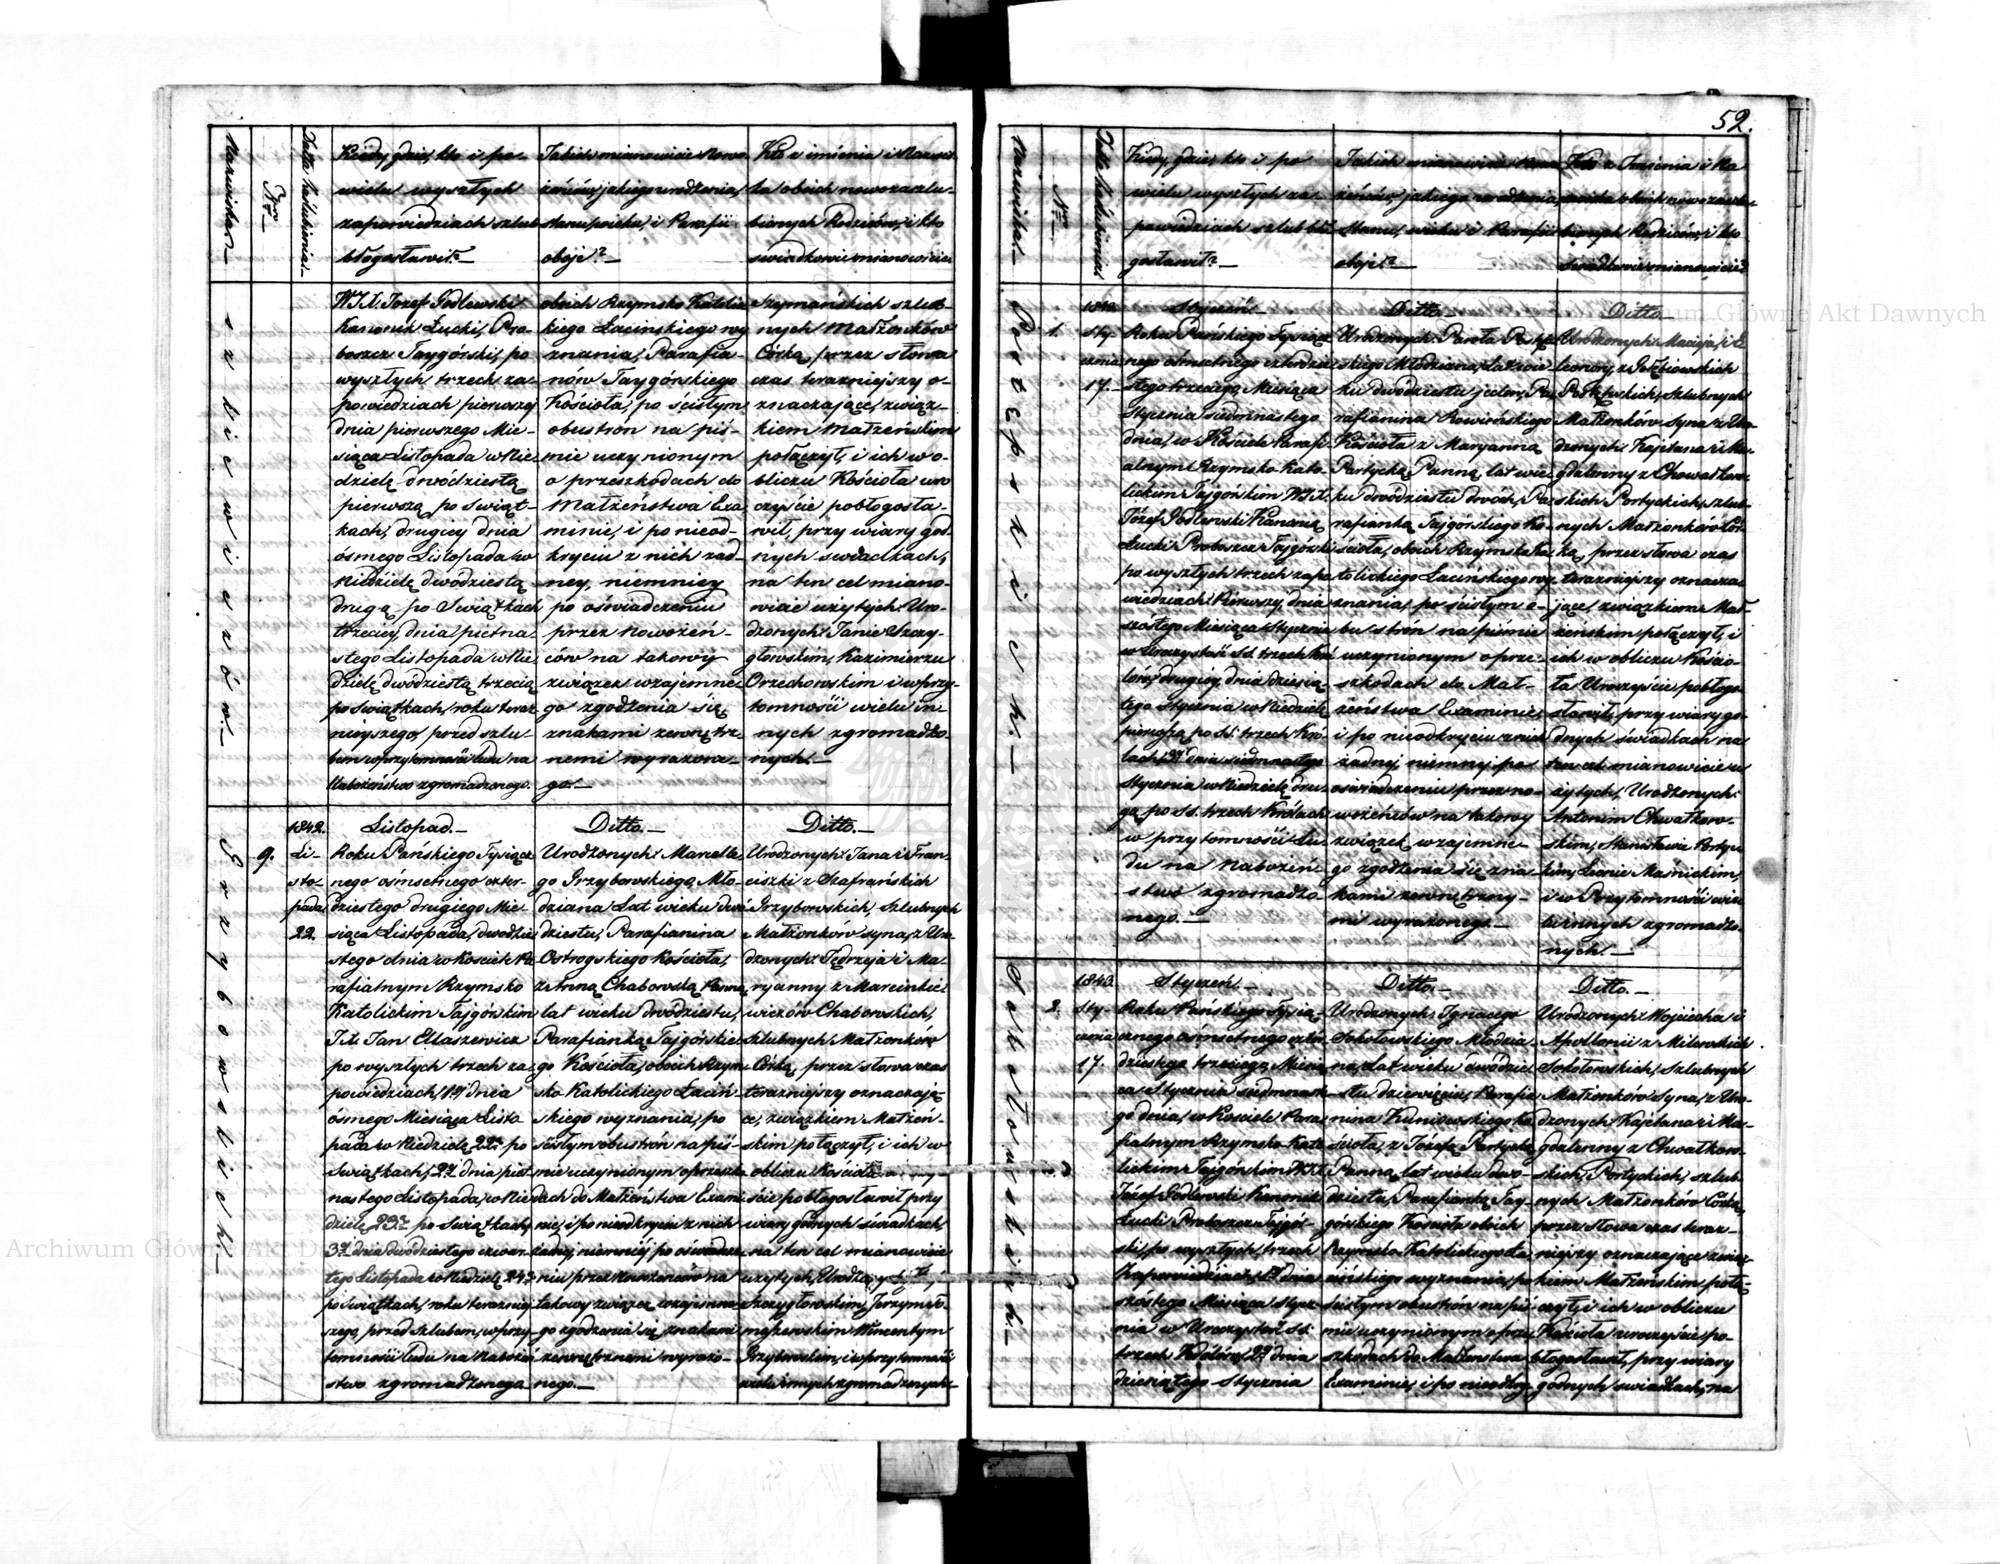 52.
Nazwiska.
Nro
Data Zaślubienia.
Kiedy, gdzie, kto i po
wielu wyszłych
zapowiedziach szlub
błogosławił?
Jakich mianowicie Nowo
żeńców, jakiego urodzenia,
stanu, wieku, i Parafii
oboje?
Kto z imienia i Nazwis
ka obóich nowozaszlu-
bionych Rodziców, i kto
świadkowie mianowicie
W.J.X. Jozef Godlewski
Kanonik Łucki, Pro
boszcz Taygórski, po
wyszłych trzech za-
powiedziach pierwszey
dnia pierwszego Mie-
siąca Listopada w Nie-
dzielę dwódziestą
pierwszą po świąt-
kach, drugiey dnia
ósmego Listopada w
Niedzielę dwódziestą
drugą po Swiątkach
trzeciey, dnia pietna
stego Listopada w Nie
dzielę dwódziestą trzecią
po świątkach, roku teraz
nieyszego, przed szlu-
bem w przytomności ludu na
Nabożeństwo zgromadzonego.
obóich Rzymsko Katolic
kiego Łacinskiego wy
znania, Parafia-
nów Taygórskiego
Kościoła, po ścisłym
obustrón na piś-
mie uczynionym
o przeszkodach do
Małżeństwa Exa
minie, i po nieod-
kryciu z nich żad-
ney, niemniey
po oświadczeniu
przez nowożeń-
ców na takowy
związek wzajemne-
go zgodzenia się
znakami zewnętrz
nemi wyrażone-
go.
Szymańskich szlub-
nych Małżonków
Córką, przez słowa
czas teraznieyszy o-
znaczające, związ-
kiem Małżeńskim
połączył, i ich w o-
bliczu Kościoła uro
czyście pobłogosła-
wił, przy wiary god-
nych świadkach,
na ten cel miano-
wicie użytych: Uro-
dzonych: Janie Szczy-
głowskim, Kazimierzu
Orzechowskim i w przy-
tomności wielu in-
nych zgromadzo
nych.
Grzybowskich
9.
1842.
Li-
sto-
pada
22.
Listopad.
Roku Pańskiego Tysiącz
nego ośmsetnego czter-
dziestego drugiego Mie-
siąca Listopada, dwódzie
stego dnia w Kosciele Pa
rafialnym Rzymsko
Katolickim Tajgórskim
J.X. Jan Eliaszewicz
po wyszłych trzech za-
powiedziach, 1éj dnia
ósmego Miesiąca Listo
pada w Niedzielę 22ą po
świątkach, 2éj dnia piet
nastego Listopada, w Nie
dzielę 23ą po Swiątkach,
3éj dnia dwódziestego czwar
tego Listopada w Niedzielę 24ą
po świątkach, roku teraźniey
szego, przed szlubem, w przy-
tomności ludu na Nabożeń
stwo zgromadzonego.
Ditto.
Urodzonych: Marcelle
go Grzybowskiego, Mło-
dziana Lat wieku dwó
dziestu, Parafianina
Ostrogskiego Kościoła,
z Anną Chabowską Panną
lat wieku dwódziestu,
Parafianką Tajgórskie
go Kościoła, obóich Rzym
sko Katolickiego Łaciń
skiego wyznania, po
ścisłym obustrón na piś-
mie uczynionym o przeszko
dach do Małżeństwa Exami
nie, i po nieodkryciu z nich
żadnej niemniéj po oświadcze
niu przez Nowożeńców na
takowy związek wzajemne-
go zgodzenia się znakami
zewnętrznemi wyrażo-
nego.
Ditto.
Urodzonych: Jana i Fran-
ciszki z Szafrańskich
Grzybowskich, Szlubnych
Małżonków syna, z Uro
dzonych: Jędrzeja i Ma-
ryanny z Marcinkie
wiczów Chabowskich,
Szlubnych Małżonków
Córką, przez słowa czas
teraznieyszy oznaczają
ce, związkiem Małżeń-
skim połączył, i ich w
obliczu Kościoła uroczy-
ście pobłogosławił przy
wiary godnych świadkach,
na ten cel mianowicie
użytych, Urodzonych:
Szczygłowskim, Jerzym
Wincentym
Grzybowskim, i w przytomności
wielu innych zgromadzonych.
Nazwiska.
Nro
Data Zaślubienia
Kiedy, gdzie, kto i po
wielu wyszłych za-
powiedziach szlub bło
gosławił?
Jakich mianowicie Nowo
żeńców, jakiego urodzenia,
Stanu, wieku i Parafii
oboje?
Kto z Imienia i Na
zwiska obóich nowozaszlu
bionych Rodziców, i kto
świadkowie mianowicie?
1.
1843.
Sty-
cznia
17.
Styczeń.
Roku Pańskiego Tysiącz
nego ośmsetnego czterdzie
stego trzeciego, Miesiąca
Stycznia siedmnastego
dnia, w Kościele Parafi
alnym Rzymsko-Kato-
lickim Tajgórskim W.J.X.
Józef Godlewski Kanonik
Łucki Proboszcz Tajgórski
po wyszłych trzech zapo
wiedziach: Pierwszéj, dnia
szóstego Miesiąca Stycznia
w Uroczystość SS. trzech Kró
lów, drugiéj, dnia dziesią
tego Stycznia w Niedzielę
pierwszą po SS. trzech Kró
lach, 3éj dnia siedmnastego
Stycznia w Niedzielę dru
gą po SS. trzech Królach
w przytomności Lu-
du na Nabożeń
stwo zgromadzo-
nego.
Ditto.
Urodzonych: Pawła
skiego Młodziana, Lat wie
ku dwódziestu jeden, Pa
rafianina Rowińskiego
Kościoła z Maryanną
Portycką Panną lat wie
ku dwódziestu dwóch, Pa
rafianką Tajgórskiego Ko-
ścioła, obóich Rzymsko Ka
tolickiego Łacińskiego wy
znania, po ścisłym o-
bu strón na piśmie
uczynionym o prze-
szkodach do Mał-
żeństwa Examinie,
i po nieodkryciu z nich
żadnéj, niemniéj po
oświadczeniu przez no-
wożeńców na takowy
związek wzajemne-
go zgodzenia się zna
kami zewnętrzny-
mi wyrażonego.
Ditto.
Urodzonych: Macieja, i E
leonory z
szlubnych
Małżonków Syna, z Uro
dzonych: Kajetana i Ma
gdaleny z Chwałkow
skich Portyckich, szlub
nych Małżonków Cór
ką, przez słowa czas
teraznieyszy oznacza
jące, związkiem Mał
żenskim połączył, i
ich w obliczu Kościo-
ła Uroczyście pobłogo
sławił, przy wiary go-
dnych świadkach na
ten cel mianowicie u
żytych, Urodzonych:
Antonim Chwałkow-
skim, Stanisławie Porty
ckim, Leonie Maśnickim,
i w Przytomności wie
lu innych zgromadzo
nych.
Sokołowskich.
2.
1843.
Sty-
cznia
17.
Styczeń.
Roku Pańskiego Tysią-
cznego ośmsetnego czter
dziestego trzeciego, Miesią
ca Stycznia siedmnaste
go dnia, w Kościele Para
fialnym Rzymsko Kato
lickim Tajgórskim W.J.X.
Józef Godlewski Kanonik
Łucki Proboszcz Tajgór-
ski, po wyszłych trzech
Zapowiedziach, 1éj dnia
szóstego Miesiąca Stycz-
nia w Uroczystość SS.
trzech Królów, 2éj dnia
dziesiątego Stycznia
Ditto.
Urodzonych: Ignacego
Sokołowskiego Młodzia-
na, Lat wieku dwódzie
stu dziewięciu, Parafia
nina Kuniowskiego Ko
ścioła, z Józefą Portycką
Panną, lat wieku dwó-
dziestu, Parafianką Taj-
górskiego Kościoła obóich
Rzymsko Katolickiego Ła
cińskiego wyznania, po
ścisłym obustrón na piś
mie uczynionym o prze
szkodach do Małżeństwa
Examinie, i po nieodkry
Ditto.
Urodzonych: Wojciecha i
Apollonii z Milewskich
Sokołowskich, Szlubnych
Małżonków Syna, z Uro-
dzonych Kajetana i Ma-
gdaleny z Chwałkow-
skich, Portyckich, szlub-
nych Małżonków Córką,
przez słowa czas teraz-
niejszy oznaczające związ
kiem Małżeńskim połą-
czył, i ich w obliczu
Kościoła uroczyście po-
błogosławił, przy wiary
godnych świadkach, na
Archiwum Główne Akt Dawnych
Archiwum Główne Akt Dawnych